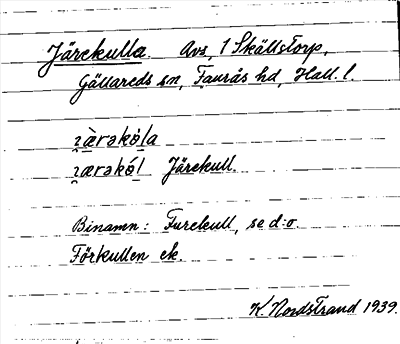 Järekulla. Avs, 1 Skällstorp,
Gällareds sn, Faurås hd, Hall. l.
ɿærəkɷ́la
ɿærəkɷ́l Järekull.
Binamn: Furekull, se d:o.
Förkullen ek.
K. Nordstrand 1939.